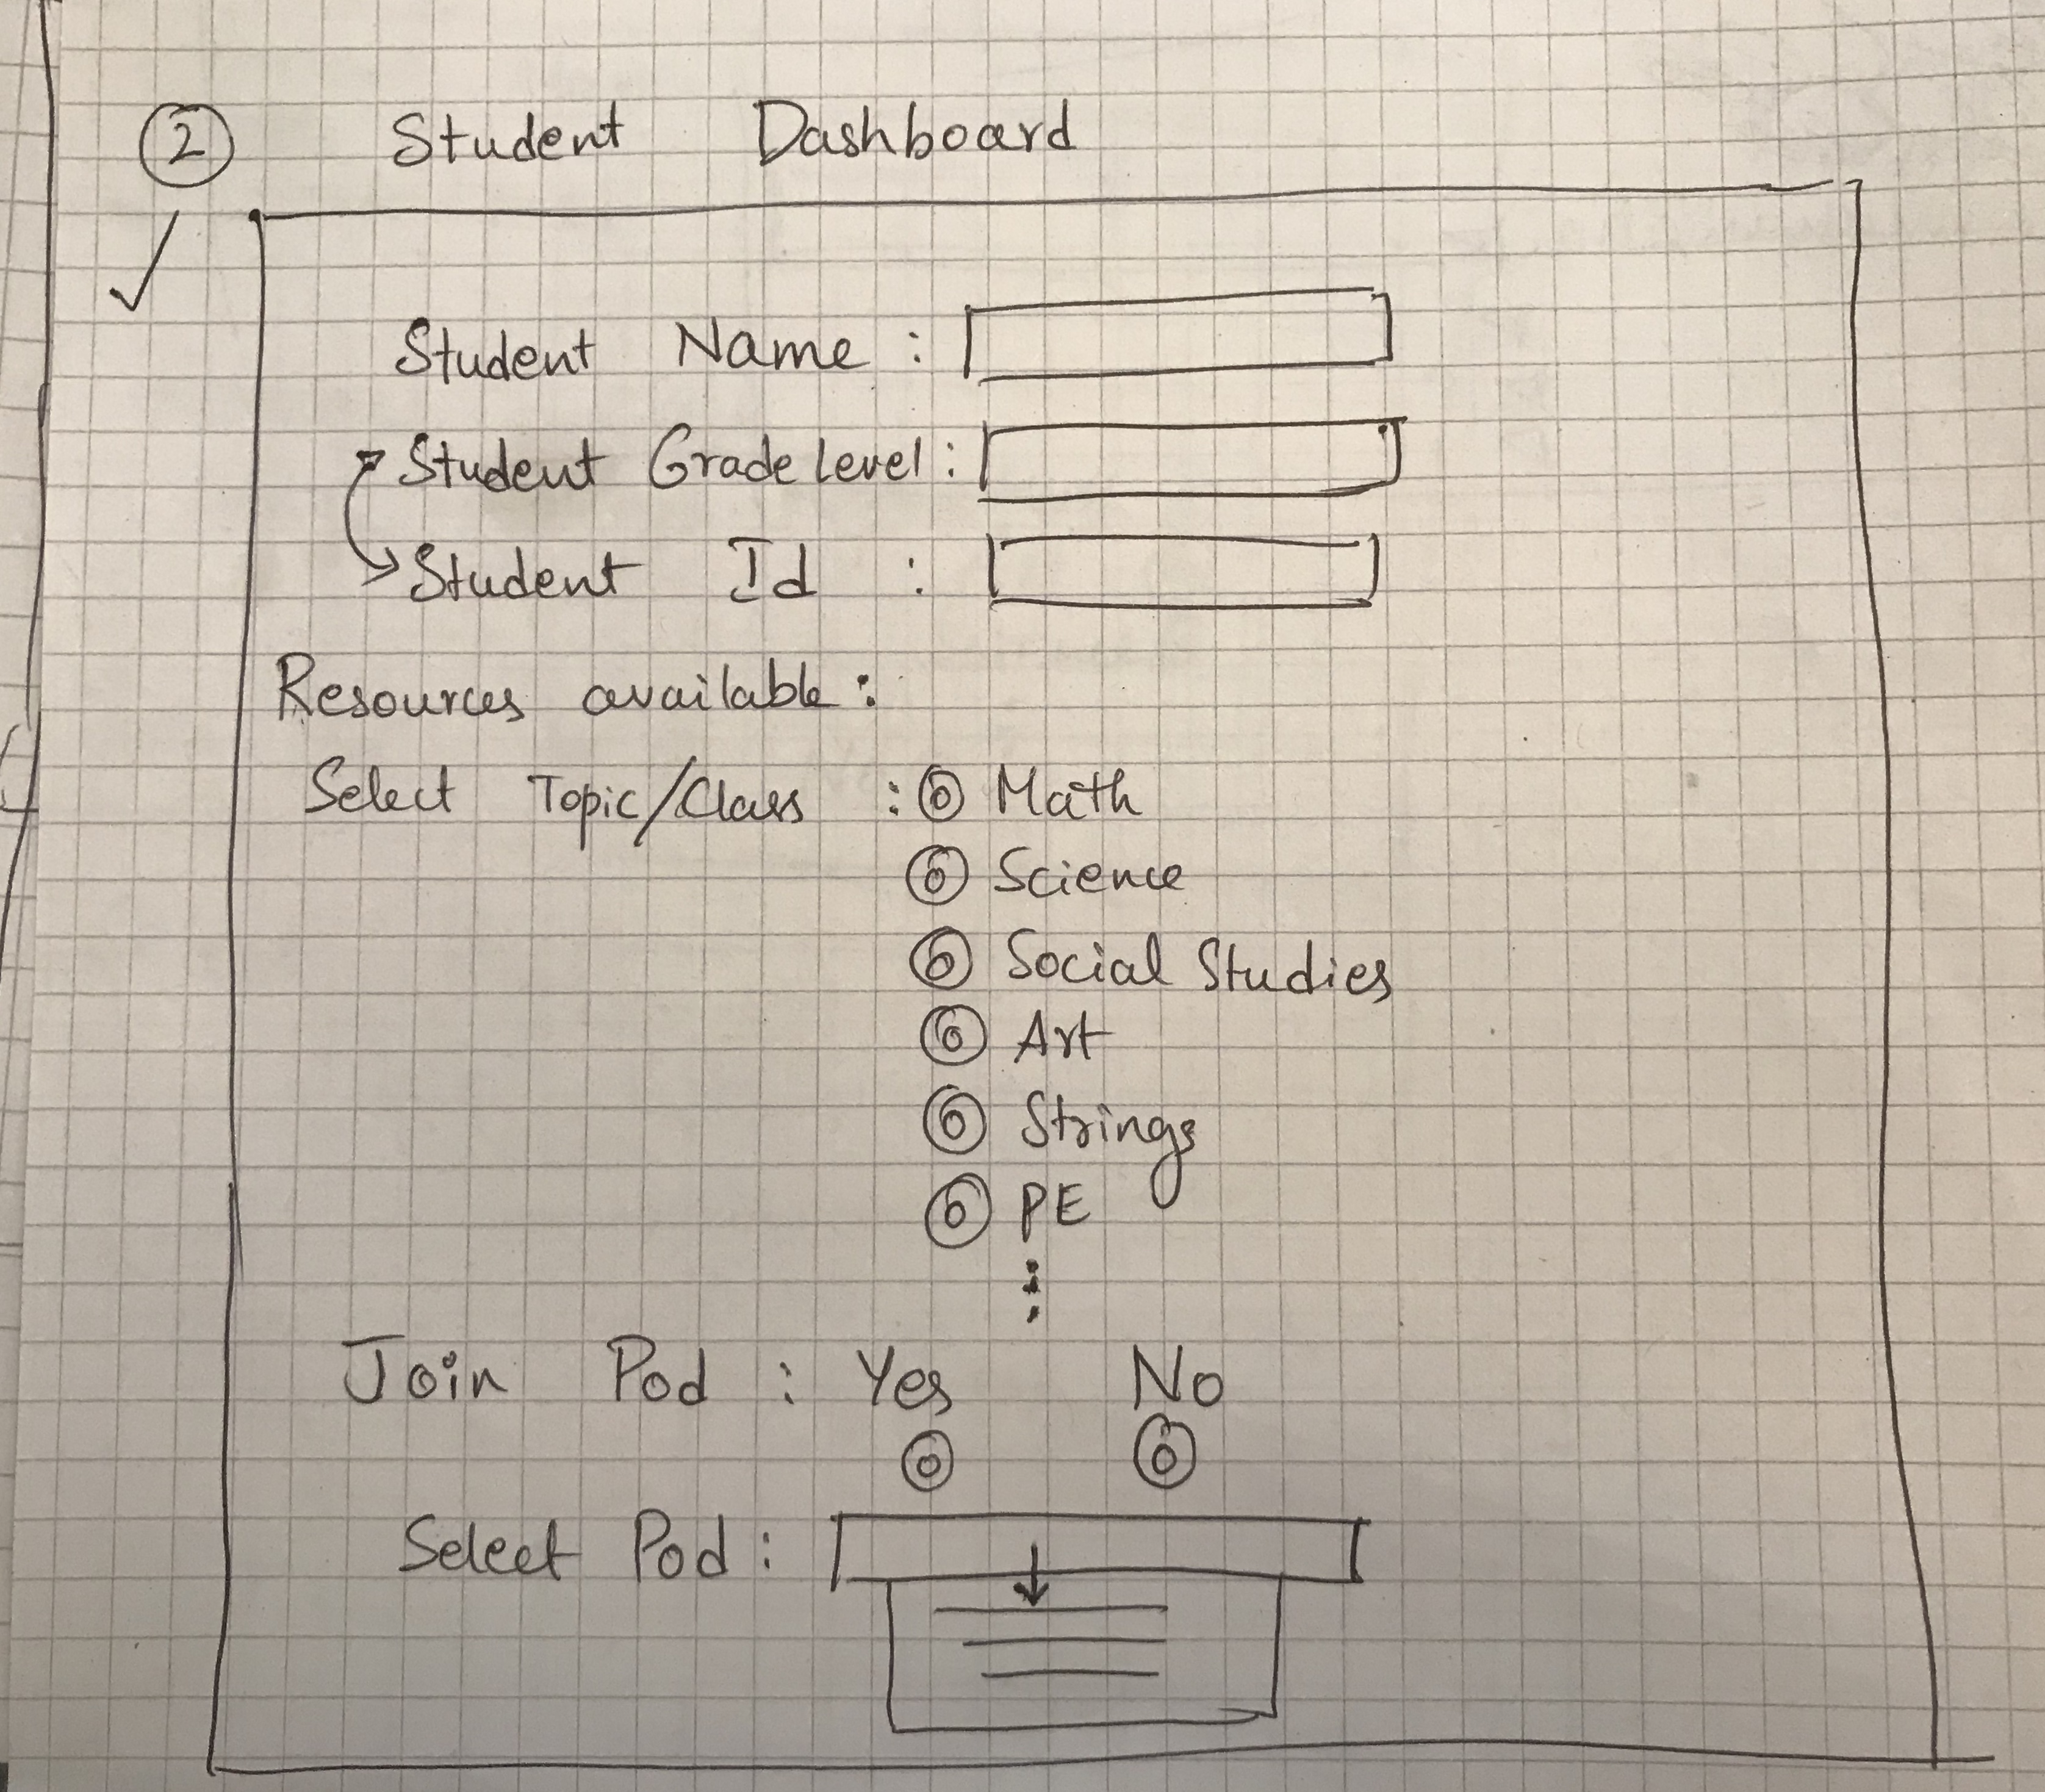 2 Student Dashboard
Student Name :
Student Grade Level :
Student Id :
Resources available :
Select Topic/Class : Math
Science
Social Studies
Art
Strings
PE
Join Pod : Yes No
Select Pod :